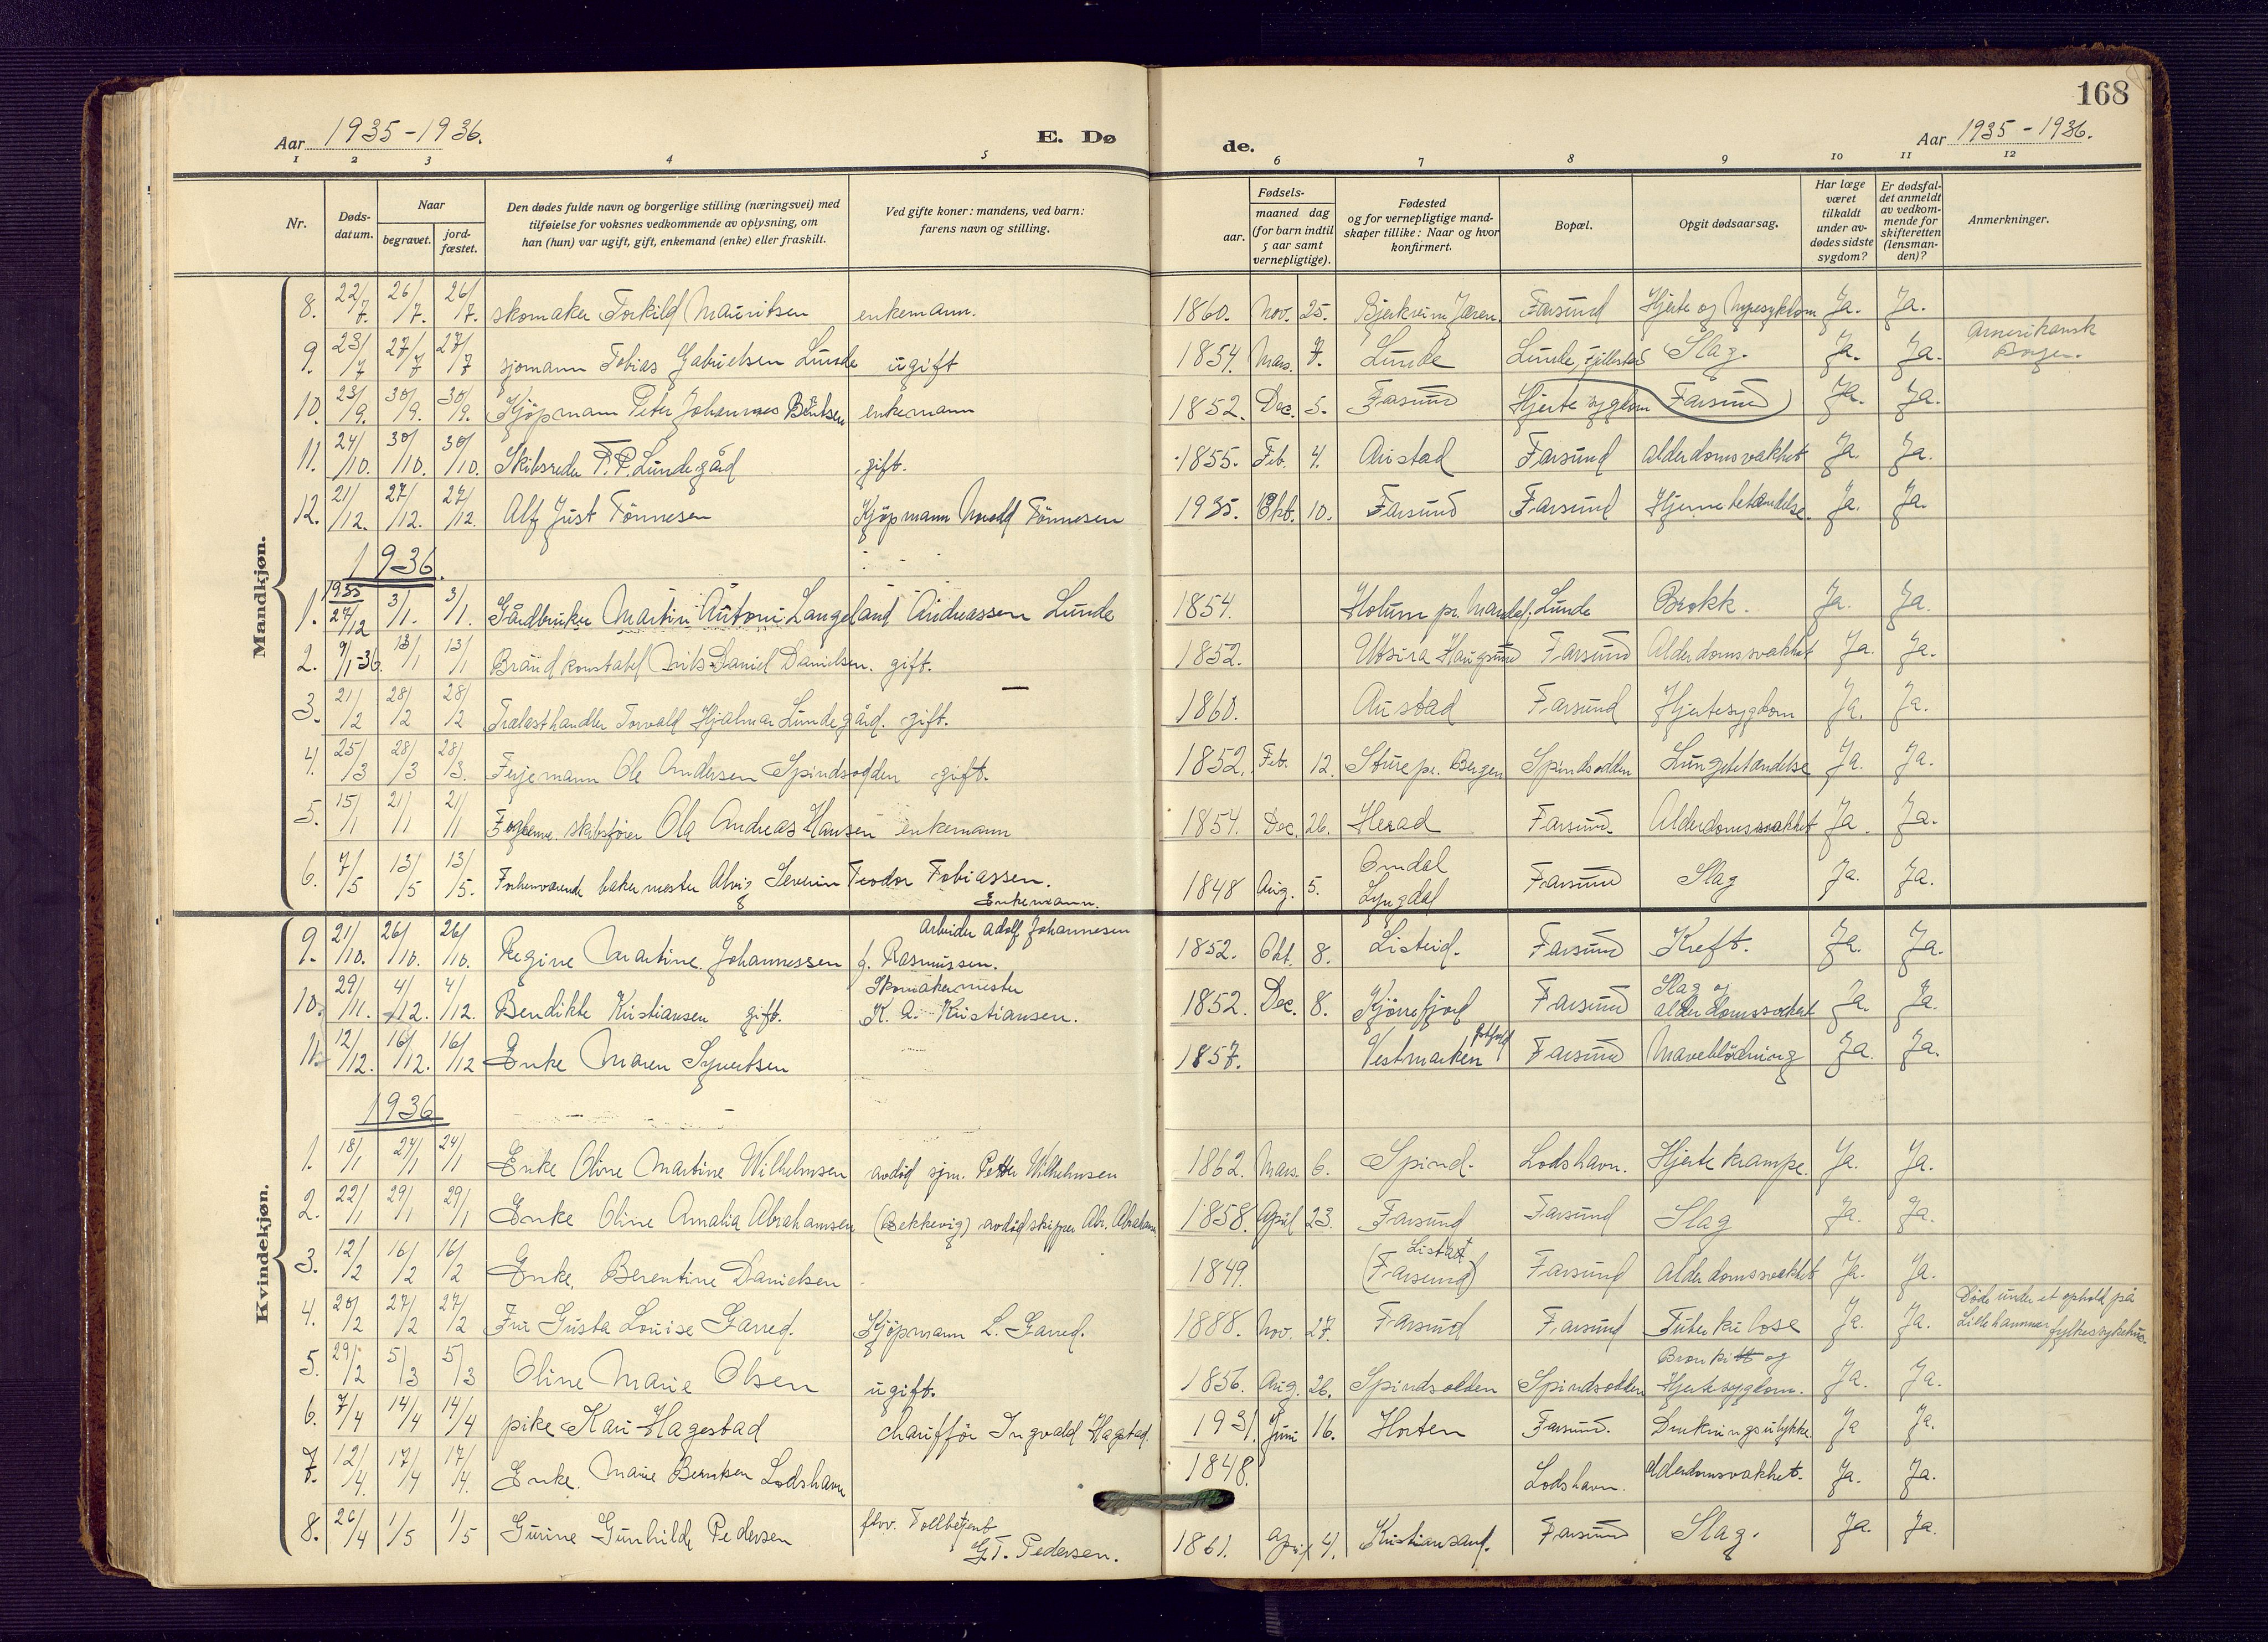 168
Aar 1935-1936.
E. Dø
de.
Aar 1935-1936.
1 2 3 4 5 6 7 8 9 10 11 12
Nr.
Døds-
datum.
Naar
begravet.
jord-
fæstet.
Den dødes fulde navn og borgerlige stilling (næringsvei) med
tilføielse for voksnes vedkommende av oplysning, om
han (hun) var ugift, gift, enkemand (enke) eller fraskilt.
Ved gifte koner: mandens, ved barn:
farens navn og stilling.
Fødsels-
aar.
maaned dag
(for barn indtil
5 aar samt
vernepligtige).
Fødested
og for vernepligtige mand-
skaper tillike: Naar og hvor
konfirmert.
Bopæl.
Opgit dødsaarsag.
Har læge
været
tilkaldt
under av-
dødes sidste
sygdom?
Er dødsfal-
det anmeldt
av vedkom-
mende for
skifteretten
(lensman-
den)?
Anmerkninger.
Mandkjøn.
8. 22/7. 26/7. 26/7. skomaker Torkild Mauritsen enkemann. 1860. Nov. 25. Bjerkreim Jæren. Farsund Hjerte og Nyresykdom Ja. Ja.
9. 23/7 27/7 27/7 sjømann Tobias Gabrielsen Lunde ugift 1854. Mars. 7. Lunde Lunde, Slag. Ja. Ja. Amerikansk
Borger.
10. 23/9. 30/9. 30/9. Kjøpmann Peter Johannes Berntsen enkemann 1852. Dec. 5. Farsund Hjertesygdom Farsund Ja. Ja.
11. 24/10. 30/10. 30/10. Skibsreder F. P. Lundegård gift. 1855. Feb. 4. Austad Farsund Alderdomsvakhet Ja. Ja.
12. 21/12. 27/12. 27/12. Alf Just Tønnesen Kjøpmann Tønnesen 1935. Okt. 10. Farsund Farsund Hjernebetændelse. Ja. Ja.
1936.
1. 1935 27/12 3/1. 3/1. Gårdbruker Martin Antoni Langeland Andreassen Lunde 1854. Holum pr. Mandal. Lunde Brokk. Ja. Ja.
2. 9/1-36. 13/1 13/1 Brandkonstabel Nils Daniel Danielsen. gift. 1852. Utsira Haugsund Farsund Alderdomssvakhet Ja. Ja.
3. 21/2 28/2 28/2 Trælasthandler Torvald Hjalmar Lundegård. gift. 1860. Austad Farsund Hjertesygdom Ja. Ja.
4. 25/3 28/3 28/3. Ferjemann Ole Andersen Spindsodden gift. 1852. Feb. 12. Sture pr. Bergen Spindsodden Lungebetændelse Ja. Ja.
5. 15/1 21/1 21/1 skibsfører Ola Andreas Hansen enkemann 1854. Dec. 26. Herad Farsund. Alderdomssvakhet Ja. Ja.
6. 7/5 13/5 13/5. Forhenværende bakermester Severin Teodor Tobiassen.
Enkemann. 1848 Aug. 5. Omdal
Lyngdal Farsund Slag Ja. Ja.
Kvindekjøn.
9. 21/10. 26/10. 26/10. Regine Martine Johannessen Arbeider Adolf Johannesen
f. Rasmussen. 1852. Okt. 8. Listeid. Farsund Kreft. Ja. Ja.
10. 29/11. 4/12. 4/12. Bendikte Kristiansen gift. Skomakermester
K. A. Kristiansen. 1852. Dec. 8. Kjørrefjord Farsund Slag og
alderdomssvakhet Ja. Ja.
11. 12/12. 16/12. 16/12 Enke Maren Syvertsen 1857. Vestmarken Farsund Maveblødning Ja. Ja.
1936
1. 18/1 24/1 24/1 Enke Oline Martine Wilhelmsen avdød sjm. Petter Wilhelmsen 1862. Mars. 6. Spind. Lodshavn. Hjertekrampe. Ja. Ja.
2. 22/1 29/1 29/1 Enke Oline Amalia Abrahamsen (Bekkevig) avdød skipper Abr. Abrahamsen 1858. April 23. Farsund Farsund Slag Ja. Ja.
3. 12/2 16/2 16/2 Enke. Berentine Danielsen 1849. Lista
(Farsund) Farsund Alderdomssvakhet Ja. Ja.
4. 20/2 27/2 27/2 Fru Gusta Louise Garred. Kjøpmann L. Garred. 1888. Nov. 27. Farsund Farsund Tuberkulose Ja. Ja. Døde under et ophold på
Lillehammer fylkessykehus.
5. 29/2 5/3 5/3 Oline Marie Olsen ugift. 1856. Aug. 26. Spindsodden Spindsodden Bronkitt og
Hjertesygdom. Ja. Ja.
6. 7/4 14/4 14/4 pike Kari Hagestad chauffør Ingvald Hagestad. 1931. Juni 16. Horten Farsund. Drukningsulykke. Ja Ja.
7. 12/4. 17/4 17/4. Enke. Marie Berntsen Lodshavn 1848. Lodshavn. Alderdomsvakhet. Ja. Ja.
8. 26/4 1/5 1/5 Gurine Gunhilde Pedersen fhv. Tollbetjent
G.T. Pedersen. 1861. April 4. Kristiansand. Farsund Slag. Ja. Ja.